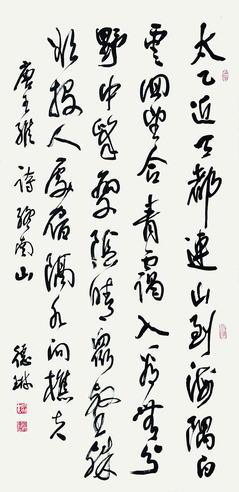 太乙近天都連山到海隅白
雲迴望合青靄入看無分
野中峰變陰晴眾壑殊
欲投人處宿隔水問樵夫
唐王維詩終南山